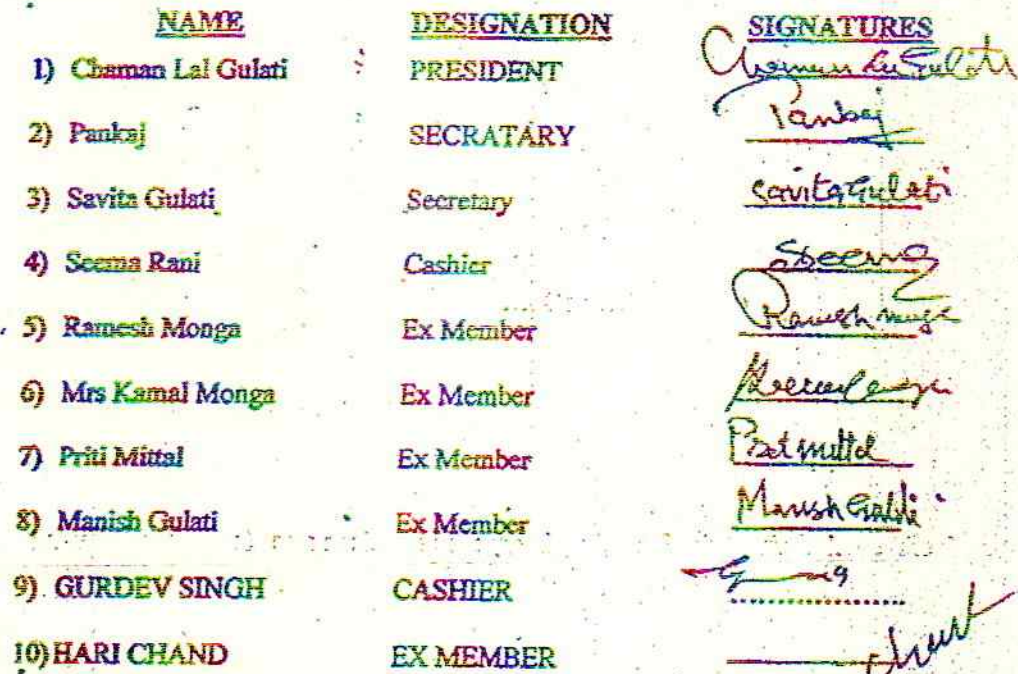 NAME DESIGNATION SIGNATURES
1) Chaman Lal Gulati PRESIDENT Chaman Lal Gulati
2) Pankaj SECRATARY Pankaj
3) Savita Gulati Secretary Savita Gulati
4) Seema Rani Cashier Seema
5) Ramesh Monga Ex Member Ramesh Monga
6) Mrs Kamal Monga Ex Member
7) Priti Mittal Ex Member Priti Mittal
8) Manish Gulati Ex Member Manish Gulati
9) GURDEV SINGH CASHIER
10) HARI CHAND EX MEMBER